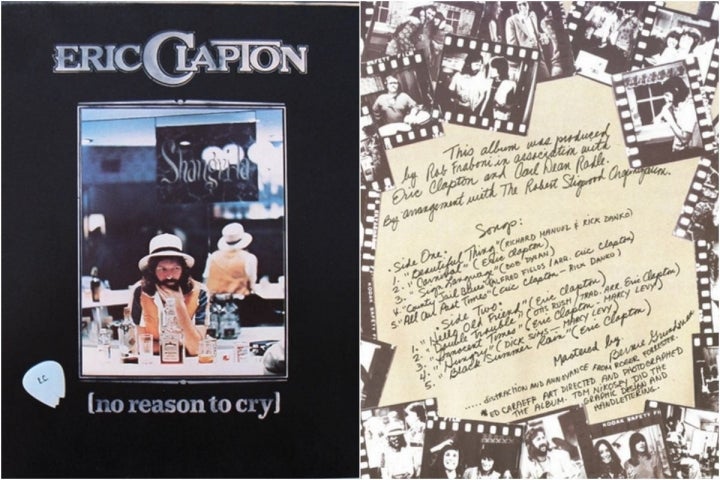 ERIC CLAPTON
Shangri-la
[no reason to cry]
This album was produced
by Rob Fraboni in association with
Eric Clapton and Carl Dean Radle.
By arrangement with The Robert Stigwood Organization.
Songs:
· Side One:
1. "Beautiful Thing" (RICHARD MANUEL & RICK DANKO)
2. "Carnival" (Eric Clapton)
3. "Sign Language" (BOB DYLAN)
4. "County Jail Blues" (ALFRED FIELDS / ARR. Eric Clapton)
5. "All Our Past Times" (Eric Clapton - RICK DANKO)
· Side Two:
1. "Hello Old Friend" (Eric Clapton)
2. "Double Trouble" (OTIS RUSH / TRAD. ARR. Eric Clapton)
3. "Innocent Times" (Eric Clapton - MARCY LEVY)
4. "Hungry" (DICK SIMS - MARCY LEVY)
5. "Black Summer Rain" (Eric Clapton)
Mastered by
Bernie Grundman
..... DISTRACTION AND ANNOYANCE FROM ROGER FORRESTER.
ED CARAEFF ART DIRECTED AND PHOTOGRAPHED
THE ALBUM. TOM NIKOSEY DID THE
GRAPHIC DESIGN AND
HANDLETTERING.
KODAK SAFETY
KODAK SAFETY